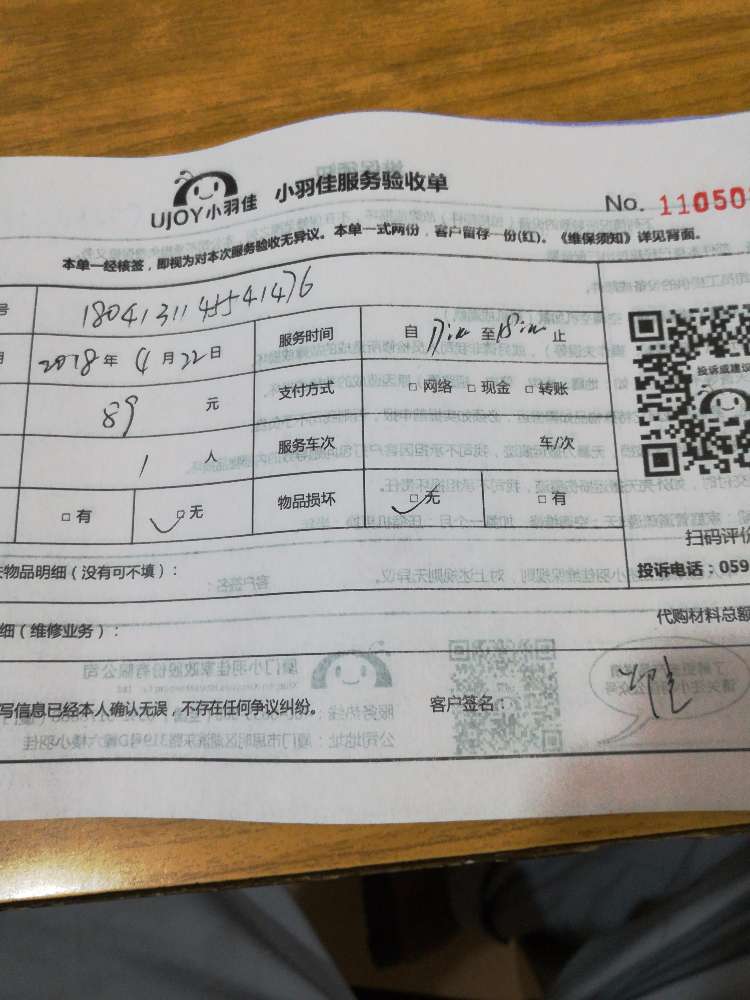 UJOY小羽佳 小羽佳服务验收单
No. 11050
本单一经核签，即视为对本次服务验收无异议。本单一式两份，客户留存一份(红)。《维保须知》详见背面。
号 1804131145541476
2018年4月22日 服务时间 自 17:00 至 18:00 止
89 元 支付方式 □网络 □现金 □转账
1 人 服务车次 车/次
□有 □无 物品损坏 □无 □有
投诉或建议
扫码评价
物品明细（没有可不填）：
投诉电话：059
细（维修业务）：
代购材料总额
写信息已经本人确认无误，不存在任何争议纠纷。 客户签名：